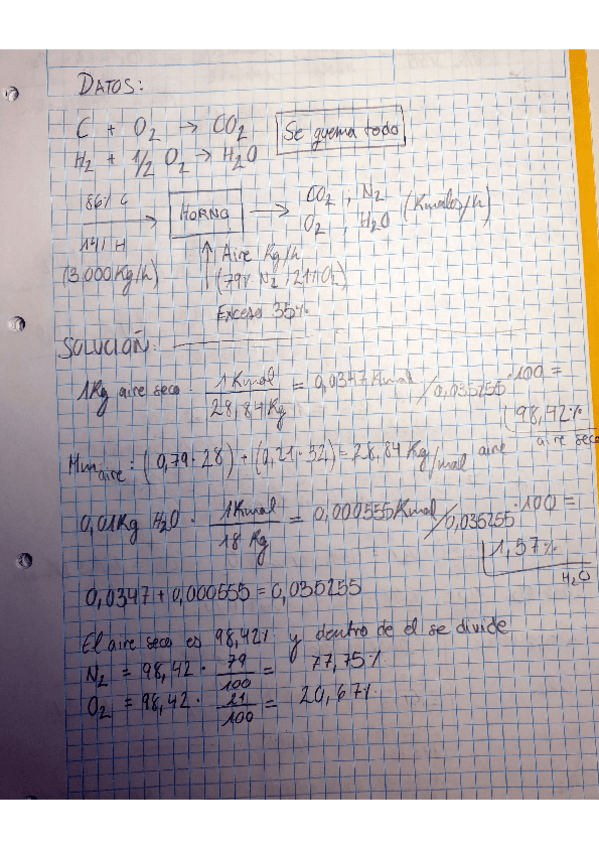 DATOS:
C + O2 → CO2 Se quema todo
H2 + 1/2 O2 → H2O
86% C
HORNO
CO2, N2
O2, H2O (Kmoles/h)
14% H
(3.000 Kg/h)
Aire Kg/h
(79% N2, 21% O2)
Exceso 35%
SOLUCIÓN:
1Kg aire seco · 1 Kmol / 28,84 Kg = 0,0347 Kmol / 0,035255 · 100 =
98,42%
aire seco
Mm aire: (0,79 · 28) + (0,21 · 32) = 28,84 Kg/mol aire
0,01 Kg H2O · 1 Kmol / 18 Kg = 0,000555 Kmol / 0,035255 · 100 =
1,57%
H2O
0,0347 + 0,000555 = 0,035255
El aire seco es 98,42% y dentro de él se divide
N2 = 98,42 · 79/100 = 77,75%
O2 = 98,42 · 21/100 = 20,67%